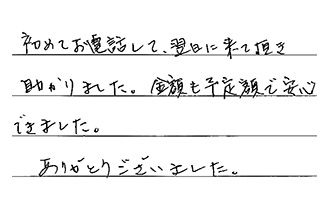 初めてお電話して、翌日に来て頂き
助かりました。金額も予定額で安心
できました。
ありがとうございました。